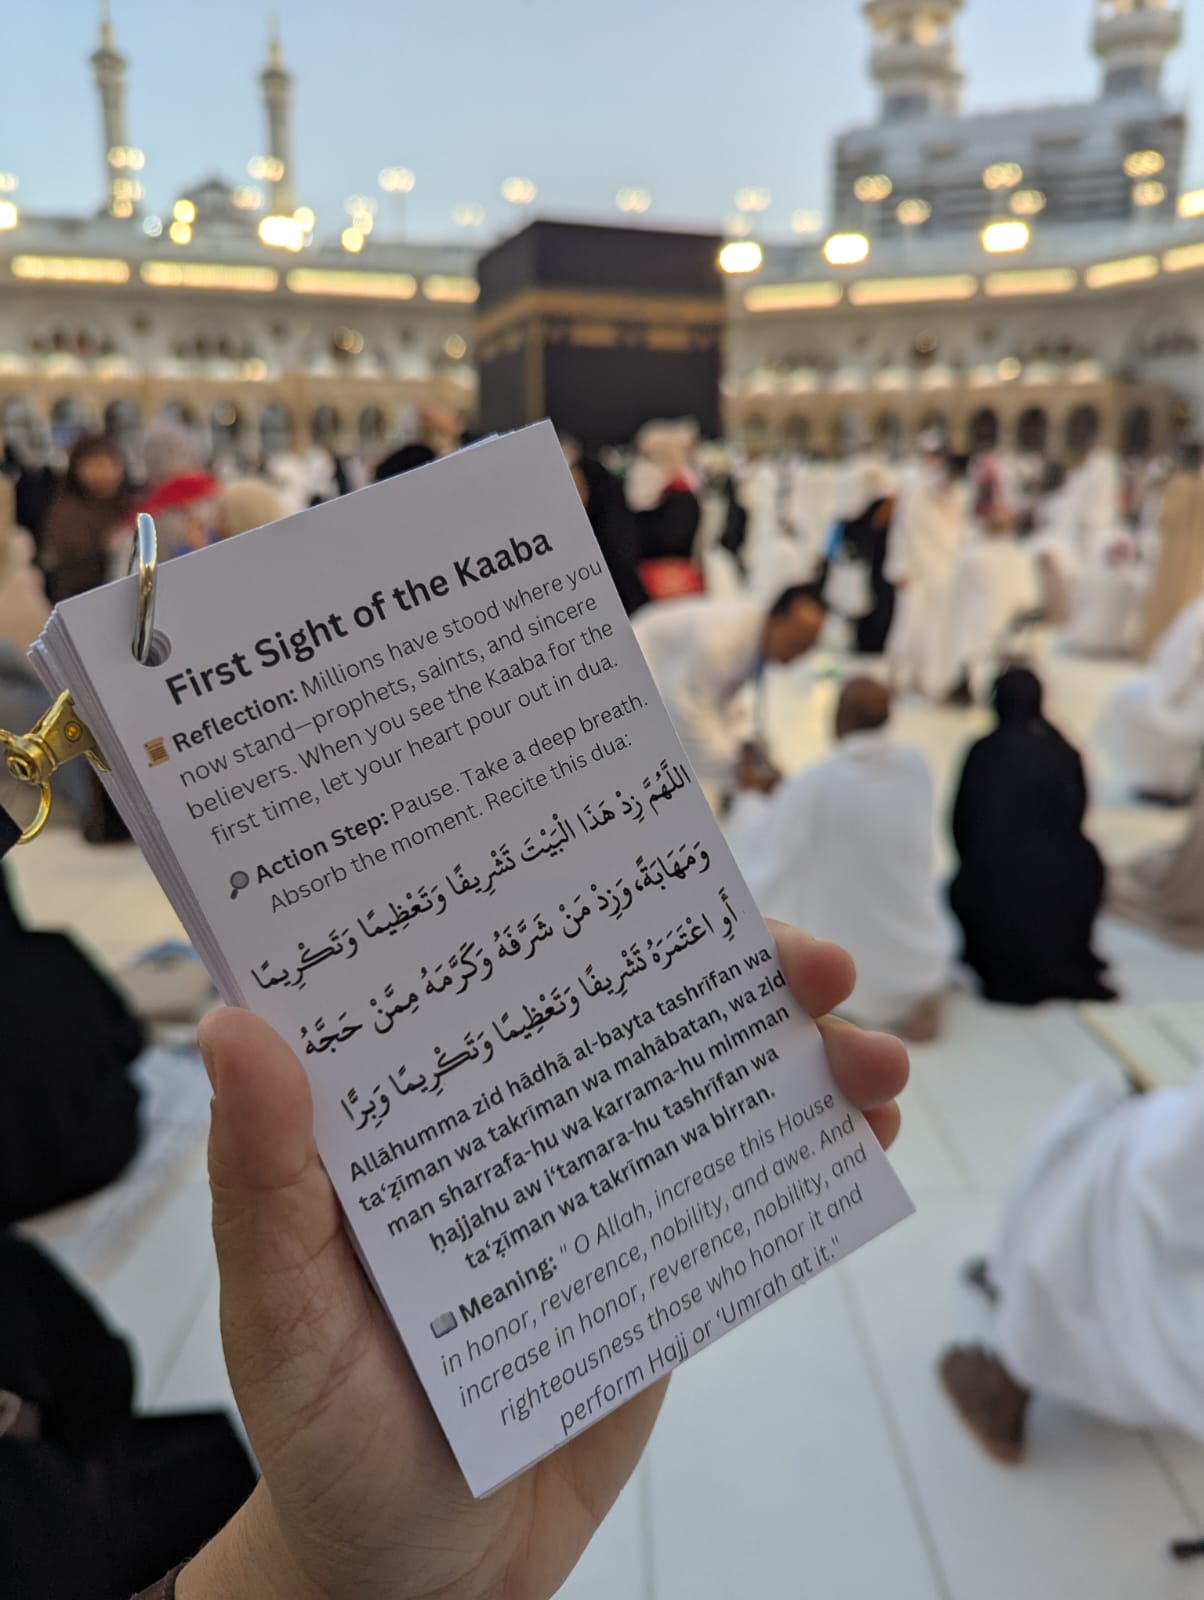 First Sight of the Kaaba
Reflection: Millions have stood where you
now stand—prophets, saints, and sincere
believers. When you see the Kaaba for the
first time, let your heart pour out in dua.
Action Step: Pause. Take a deep breath.
Absorb the moment. Recite this dua:
اللَّهُمَّ زِدْ هَذَا الْبَيْتَ تَشْرِيفًا وَتَعْظِيمًا وَتَكْرِيمًا
وَمَهَابَةً، وَزِدْ مَنْ شَرَّفَهُ وَكَرَّمَهُ مِمَّنْ حَجَّهُ
أَوِ اعْتَمَرَهُ تَشْرِيفًا وَتَعْظِيمًا وَتَكْرِيمًا وَبِرًّا
Allāhumma zid hādhā al-bayta tashrīfan wa
ta‘ẓīman wa takrīman wa mahābatan, wa zid
man sharrafa-hu wa karrama-hu mimman
ḥajjahu aw i‘tamara-hu tashrīfan wa
ta‘ẓīman wa takrīman wa birran.
Meaning: " O Allah, increase this House
in honor, reverence, nobility, and awe. And
increase in honor, reverence, nobility, and
righteousness those who honor it and
perform Hajj or ‘Umrah at it."